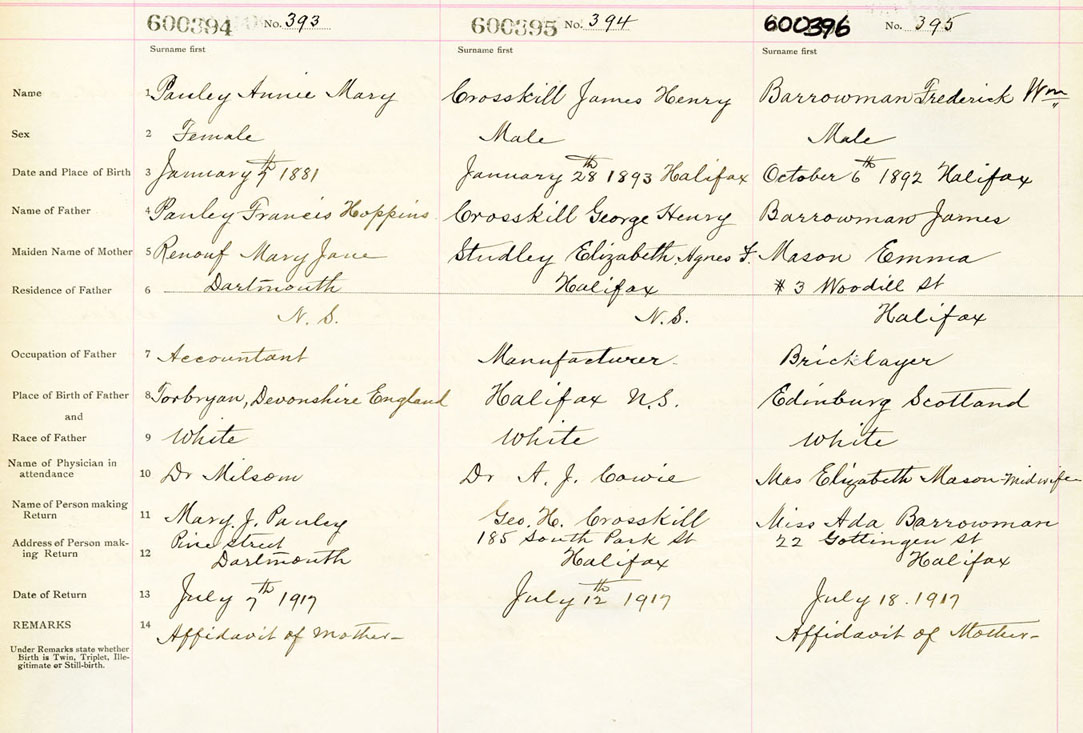 600394 No. 393 600395 No. 394 600396 No. 395
Surname first Surname first Surname first
Name 1 Pauley Annie Mary Crosskill James Henry Barrowman Frederick Wm
Sex 2 Female Male Male
Date and Place of Birth 3 January 7th 1881 January 28th 1893 Halifax October 6th 1892 Halifax
Name of Father 4 Pauley Francis Hoppins Crosskill George Henry Barrowman James
Maiden Name of Mother 5 Renouf Mary Jane Studley Elizabeth Agnes F. Mason Emma
Residence of Father 6 Dartmouth Halifax # 3 Woodill St
N. S. N. S. Halifax
Occupation of Father 7 Accountant Manufacturer Bricklayer
Place of Birth of Father 8 Torbryan, Devonshire England Halifax N.S. Edinburg Scotland
and
Race of Father 9 White White White
Name of Physician in
attendance 10 Dr Milsom Dr A. J. Cowie Mrs Elizabeth Mason-Midwife
Name of Person making
Return 11 Mary. J. Pauley Geo. H. Crosskill Miss Ada Barrowman
Address of Person mak- Pine Street 185 South Park St 22 Gottingen St
ing Return 12 Dartmouth Halifax Halifax
Date of Return 13 July 7th 1917 July 12th 1917 July 18. 1917
REMARKS 14 Affidavit of Mother- Affidavit of Mother-
Under Remarks state whether
Birth is Twin, Triplet, Ille-
gitimate or Still-birth.